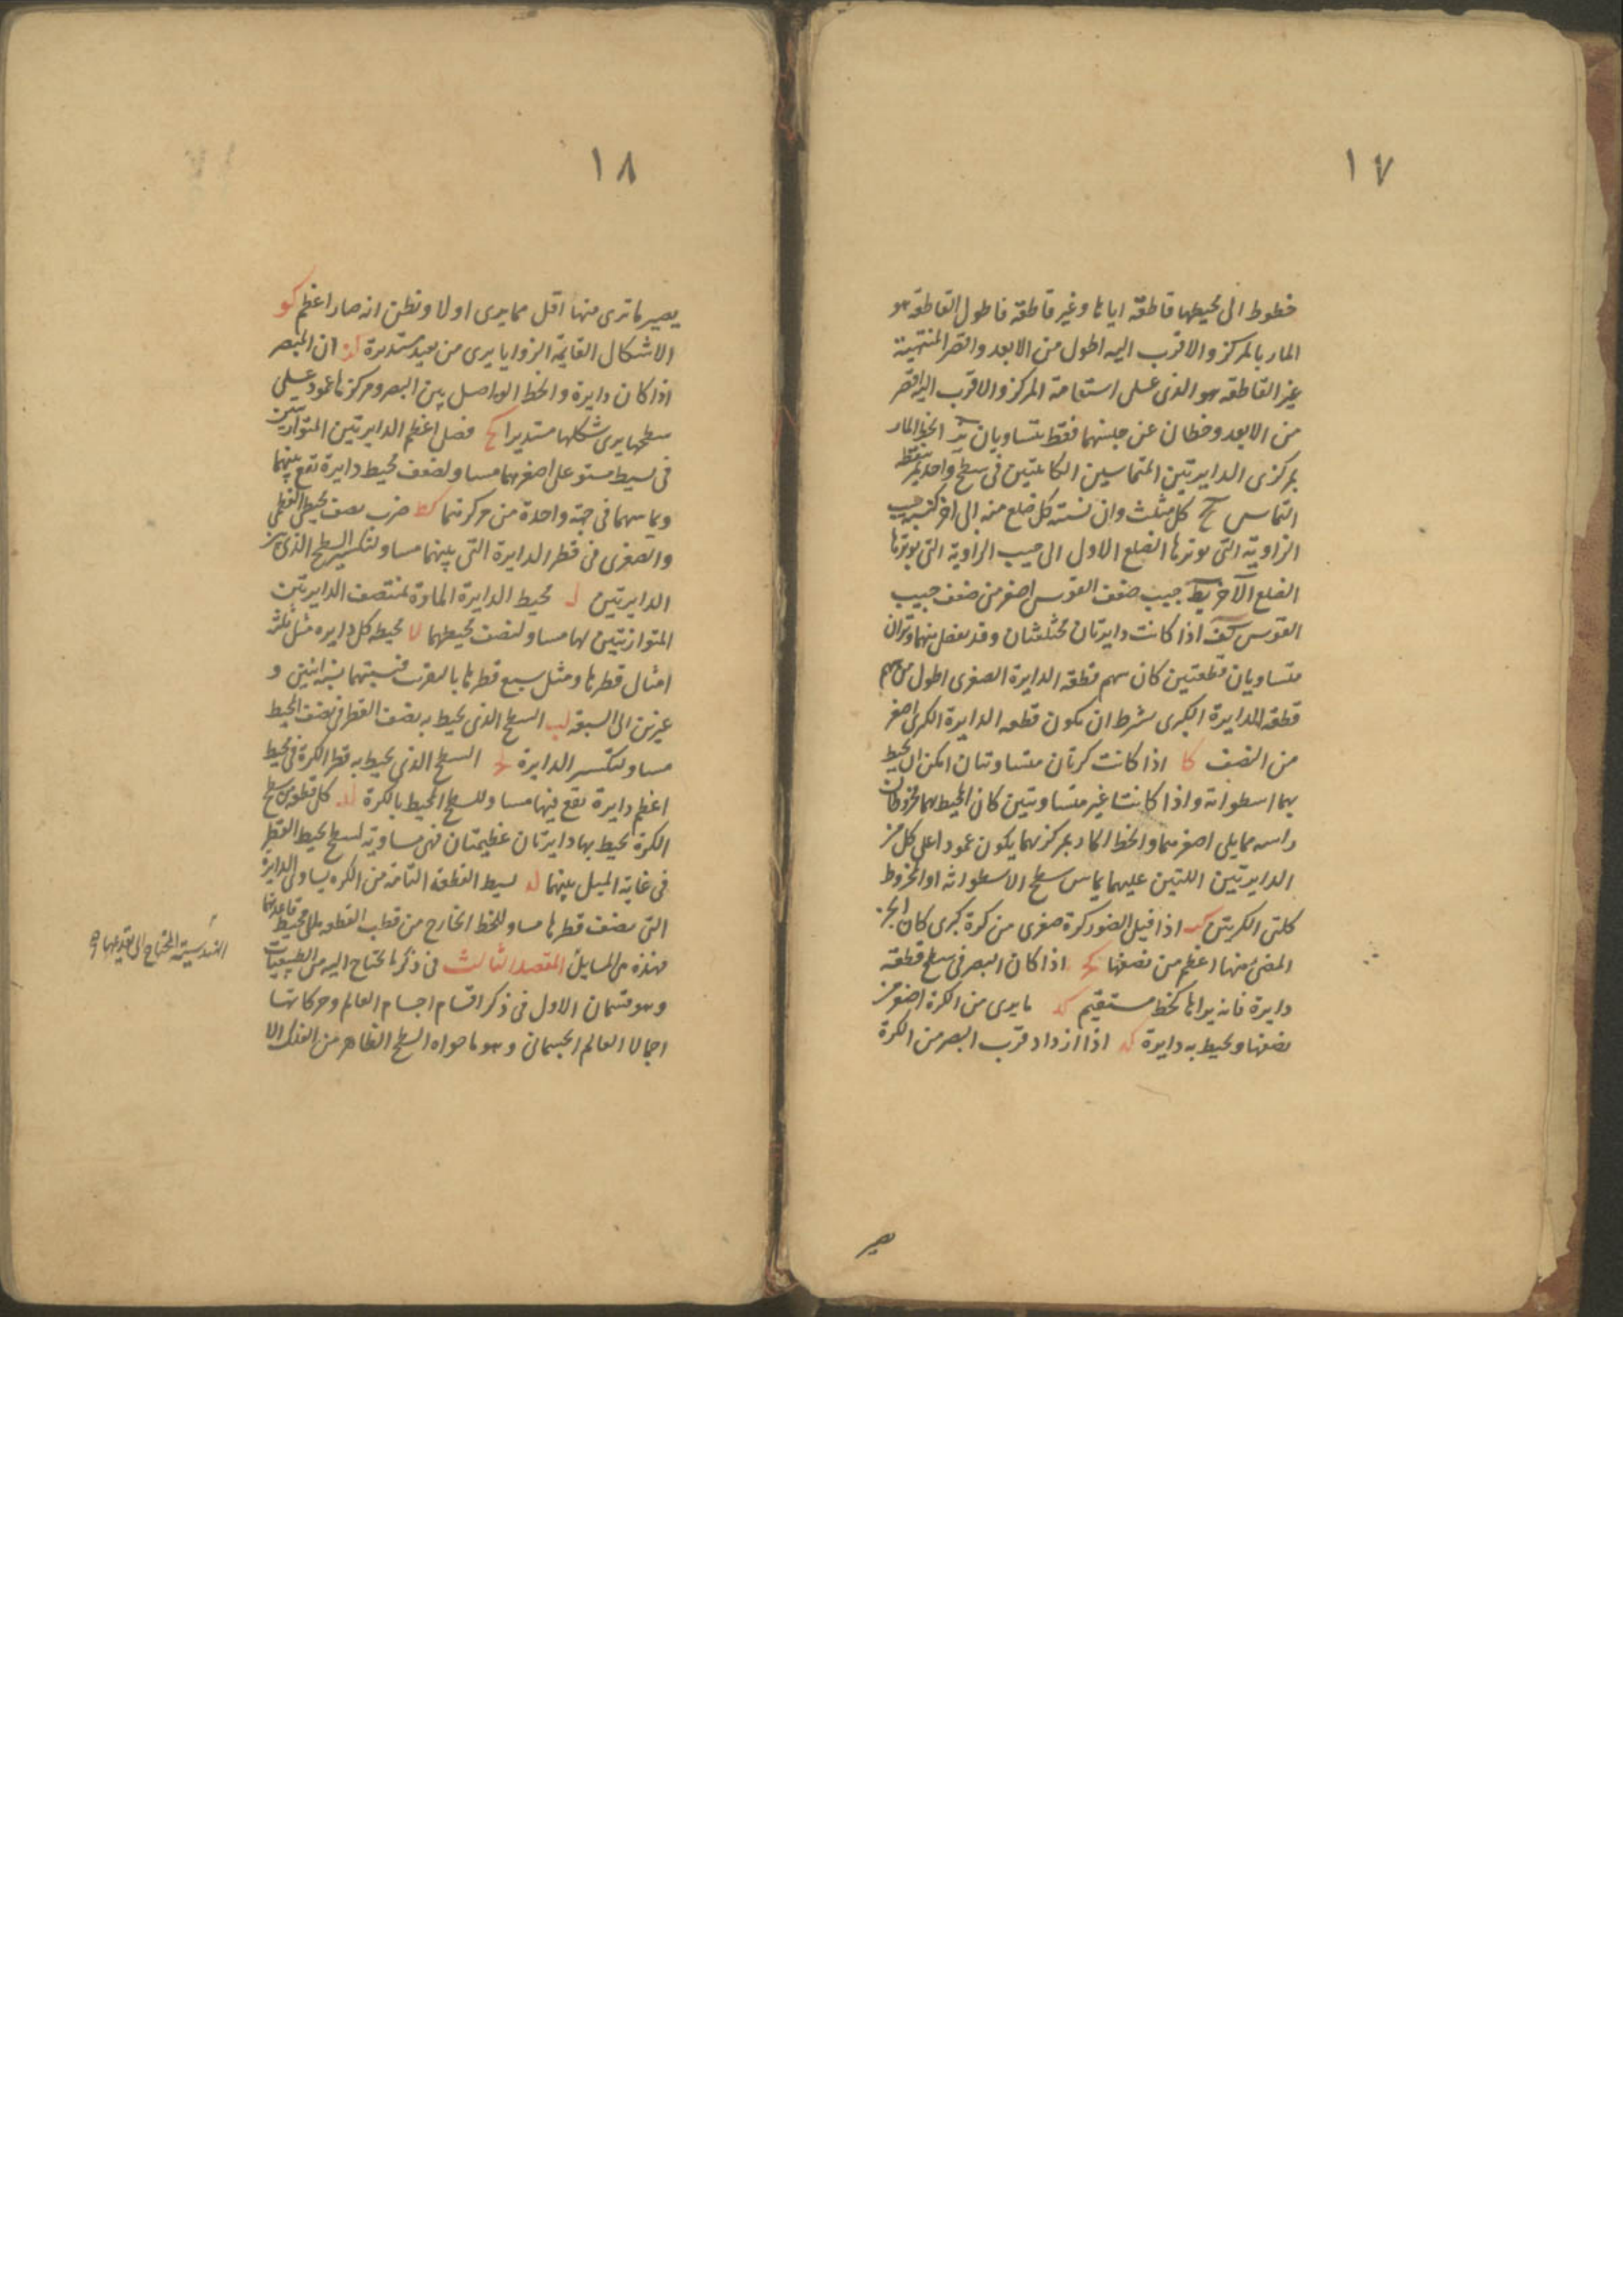 ١٧
خطوط الى محيطها قاطعة اياها وغير قاطعة فاطول القاطعة هو
المار بالمركز والاقرب اليه اطول من الابعد واقصر المنتهية
غير القاطعة هو الذى على استقامة المركز والاقرب اليه اقصر
من الابعد وخطان عن جنبيهما فقط متساويان يز الخط المار
بمركزى الدايرتين المتماسين الكاينتين فى سطح واحد يمر بنقطة
التماس يح كل مثلث فان نسبة كل ضلع منه الى اخر كنسبة جيب
الزاوية التى يوترها الضلع الاول الى جيب الزاوية التى يوترها
الضلع الآخر يط جيب ضعف القوس اصغر من ضعف جيب
القوس ك اذا كانت دايرتان مختلفتان وقد يفصل منهما وتران
متساويان قطعتين كان سهم قطعة الدايرة الصغرى اطول من سهم
قطعة الدايرة الكبرى بشرط ان تكون قطعه الدايرة الكبرى اصغر
من النصف كا اذا كانت كرتان متساوتان امكن ان يحيط
بهما اسطوانة واذا كانتا غير متساويتين كان المحيط بهما مخروطا
راسه مما يلى اصغرهما والخط المار بمركزيهما يكون عمودا على كل من
الدايرتين اللتين عليهما يماس سطح الاسطوانة او المخروط
كلتى الكرتين كب اذا قبل الضوء كرة صغرى من كرة كبرى كان الجزء
المضئ منها اعظم من نصفها كج اذا كان البصر فى سطح قطعة
دايرة فانه يراها كخط مستقيم كد ما يرى من الكرة اصغر من
نصفها ويحيط به دايرة كه اذا ازداد قرب البصر من الكرة
يصير
١٨
يصير ما ترى منها اقل مما يرى اولا ونظن انه صار اعظم كو
الاشكال القايمة الزوايا يرى من بعيد مستديرة كز ان المبصر
اذا كان دايرة والخط الواصل بين البصر ومركزها عمود على
سطحها يرى شكلها مستديرا كح فضل اعظم الدايرتين المتوازيتين
فى بسيط مستو على اصغرهما مساو لضعف محيط دايرة تقع بينهما
ويماسهما فى جهة واحدة من مركزيهما كط ضرب نصف محيطى العظمى
والصغرى فى قطر الدايرة التى بينهما مساو لتكسير السطح الذى بين
الدايرتين ل محيط الدايرة المارة بمنتصف الدايرتين
المتوازيتين لها مساو لنصف محيطهما لا محيط كل دايره مثل ثلثة
امثال قطرها ومثل سبع قطرها بالتقريب فنسبتهما نسبة اثنين و
عشرين الى السبعة لب السطح الذى يحيط به نصف القطر فى نصف المحيط
مساو لتكسير الدايرة لج السطح الذى يحيط به قطر الكرة فى محيط
اعظم دايرة تقع فيها مساو للسطح المحيط بالكرة لد كل قطعة من سطح
الكرة يحيط بها دايرتان عظيمتان فهى مساوية لسطح يحيط القطر
فى غاية الميل بينهما له بسيط القطعة التامة من الكره يساوى الدايرة
التى نصف قطرها مساو للخط الخارج من قطب القطعه الى محيط قاعدتها
فهذه هى المسايل المقصد الثالث فى ذكر ما يحتاج اليه من الطبيعيات
وهو قسمان الاول فى ذكر اقسام اجسام العالم وحركاتها
اجمالا العالم الجسمانى وهو ما حواه السطح الظاهر من الفلك الا
الهندسية المحتاج الى تقديمها